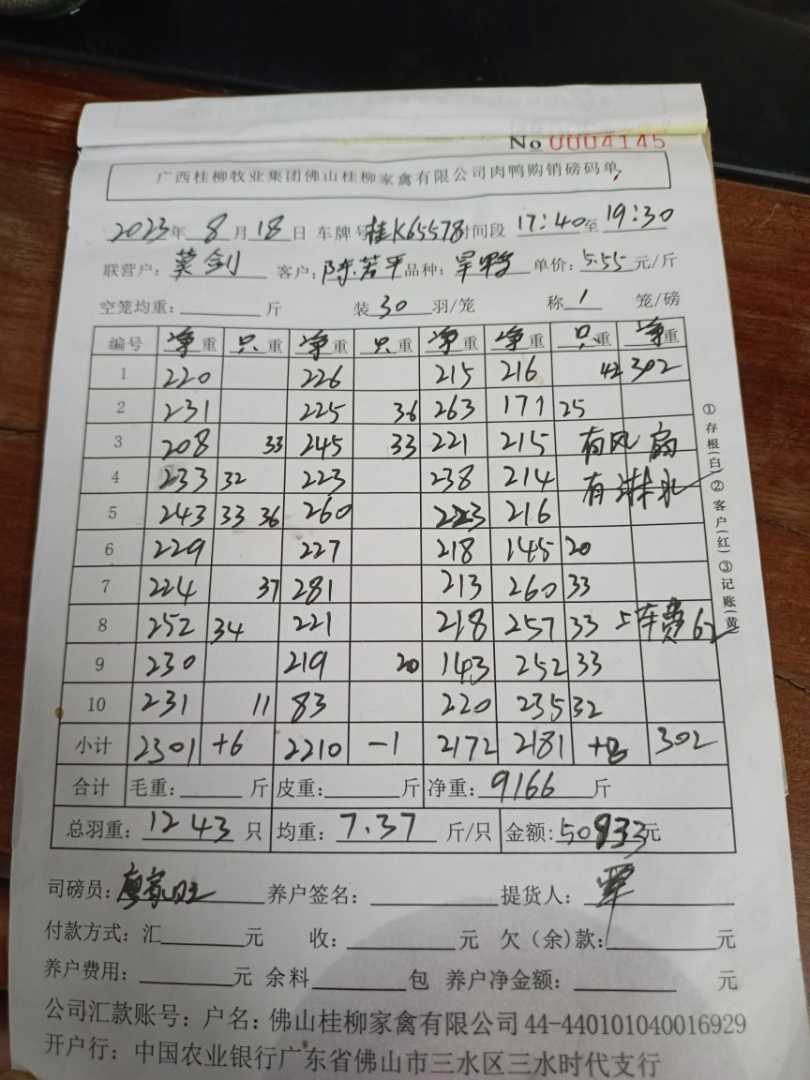 No 0004145
广西桂柳牧业集团佛山桂柳家禽有限公司肉鸭购销磅码单
2023年 8月18日 车牌号桂K65578时间段 17:40至19:30
联营户：莫剑 客户：陈若平 品种： 单价：5.55元/斤
空笼均重： 斤 装30羽/笼 称1 笼/磅
编号 净重 只重 净重 只重 净重 净重 只重 净重
1 220 226 215 216 42 302
2 231 225 36 263 171 25
3 208 33 245 33 221 215 有风扇
4 233 32 223 238 214 有淋水
5 243 33 36 260 223 216
6 229 227 218 145 20
7 224 37 281 213 260 33
8 252 34 221 218 257 33 上车费62
9 230 219 20 143 252 33
10 231 11 83 220 235 32
小计 2301 +6 2210 -1 2172 2181 302
合计 毛重： 斤 皮重： 斤 净重：9166 斤
总羽重：1243 只 均重：7.37 斤/只 金额：50933元
司磅员：廖家旺 养户签名： 提货人：
付款方式：汇 元 收： 元 欠（余）款： 元
养户费用： 元 余料 包 养户净金额： 元
公司汇款账号：户名：佛山桂柳家禽有限公司 44-440101040016929
开户行：中国农业银行广东省佛山市三水区三水时代支行
①存根(白)②客户(红)③记账(黄)